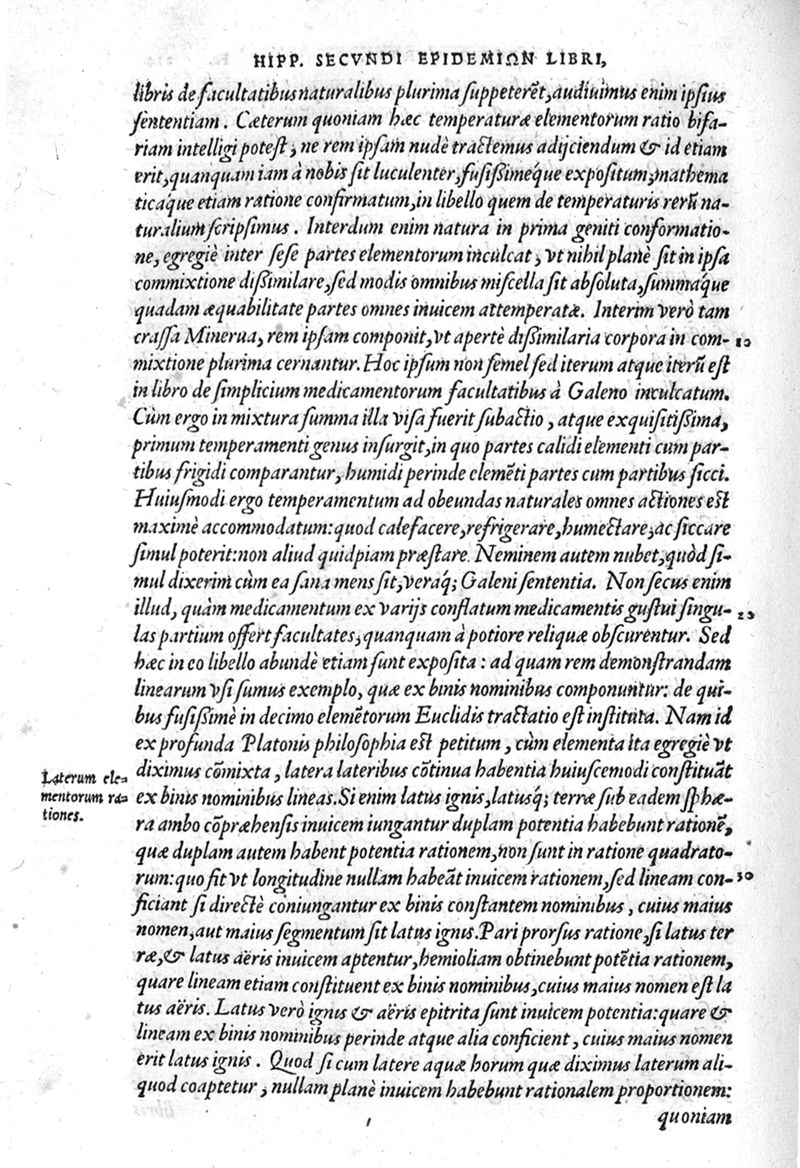 HIPP. SECVNDI EPIDEMIΩN LIBRI,
libris de facultatibus naturalibus plurima suppeterẽt, audiuimus enim ipsius
sententiam. Cæterum quoniam hæc temperaturæ elementorum ratio bifa-
riam intelligi potest, ne rem ipsam nudè tractemus adijciendum & id etiam
erit, quanquam iam à nobis sit luculenter, fusissiméque expositum, mathema
ticáque etiam ratione confirmatum, in libello quem de temperaturis rerũ na-
turalium scripsimus. Interdum enim natura in prima geniti conformatio-
ne, egregiè inter sese partes elementorum inculcat, vt nihil planè sit in ipsa
commixtione dissimilare, sed modis omnibus miscella sit absoluta, summáque
quadam æquabilitate partes omnes inuicem attemperatæ. Interim verò tam
crassa Minerua, rem ipsam componit, vt apertè dissimilaria corpora in com- 10
mixtione plurima cernantur. Hoc ipsum non semel sed iterum atque iterũ est
in libro de simplicium medicamentorum facultatibus à Galeno inculcatum.
Cùm ergo in mixtura summa illa visa fuerit subactio, atque exquisitissima,
primum temperamenti genus insurgit, in quo partes calidi elementi cum par-
tibus frigidi comparantur, humidi perinde elemẽti partes cum partibus sicci.
Huiusmodi ergo temperamentum ad obeundas naturales omnes actiones est
maximè accommodatum: quod calefacere, refrigerare, humectare, ac siccare
simul poterit: non aliud quidpiam præstare. Neminem autem nubet, quòd si-
mul dixerim cùm ea sana mens sit, veraq́; Galeni sententia. Non secus enim
illud, quàm medicamentum ex varijs conflatum medicamentis gustui singu- 20
las partium offert facultates, quanquam à potiore reliquæ obscurentur. Sed
hæc in eo libello abundè etiam sunt exposita: ad quam rem demonstrandam
linearum vsi sumus exemplo, quæ ex binis nominibus componuntur: de qui-
bus fusissimè in decimo elemẽtorum Euclidis tractatio est instituta. Nam id
ex profunda Platonis philosophia est petitum, cùm elementa ita egregiè vt
Laterum ele= diximus cõmixta, latera lateribus cõtinua habentia huiuscemodi constituãt
mentorum ra= ex binis nominibus lineas. Si enim latus ignis, latusq́; terræ sub eadem sphæ-
tiones. ra ambo cõpræhensis inuicem iungantur duplam potentia habebunt rationẽ,
quæ duplam autem habent potentia rationem, non sunt in ratione quadrato-
rum: quo fit vt longitudine nullam habeãt inuicem rationem, sed lineam con- 30
ficiant si directè coniungantur ex binis constantem nominibus, cuius maius
nomen, aut maius segmentum sit latus ignis. Pari prorsus ratione, si latus ter
ræ, & latus aëris inuicem aptentur, hemioliam obtinebunt potẽtia rationem,
quare lineam etiam constituent ex binis nominibus, cuius maius nomen est la
tus aëris. Latus verò ignis & aëris epitrita sunt inuicem potentia: quare &
lineam ex binis nominibus perinde atque alia conficient, cuius maius nomen
erit latus ignis. Quod si cum latere aquæ horum quæ diximus laterum ali-
quod coaptetur, nullam planè inuicem habebunt rationalem proportionem:
quoniam